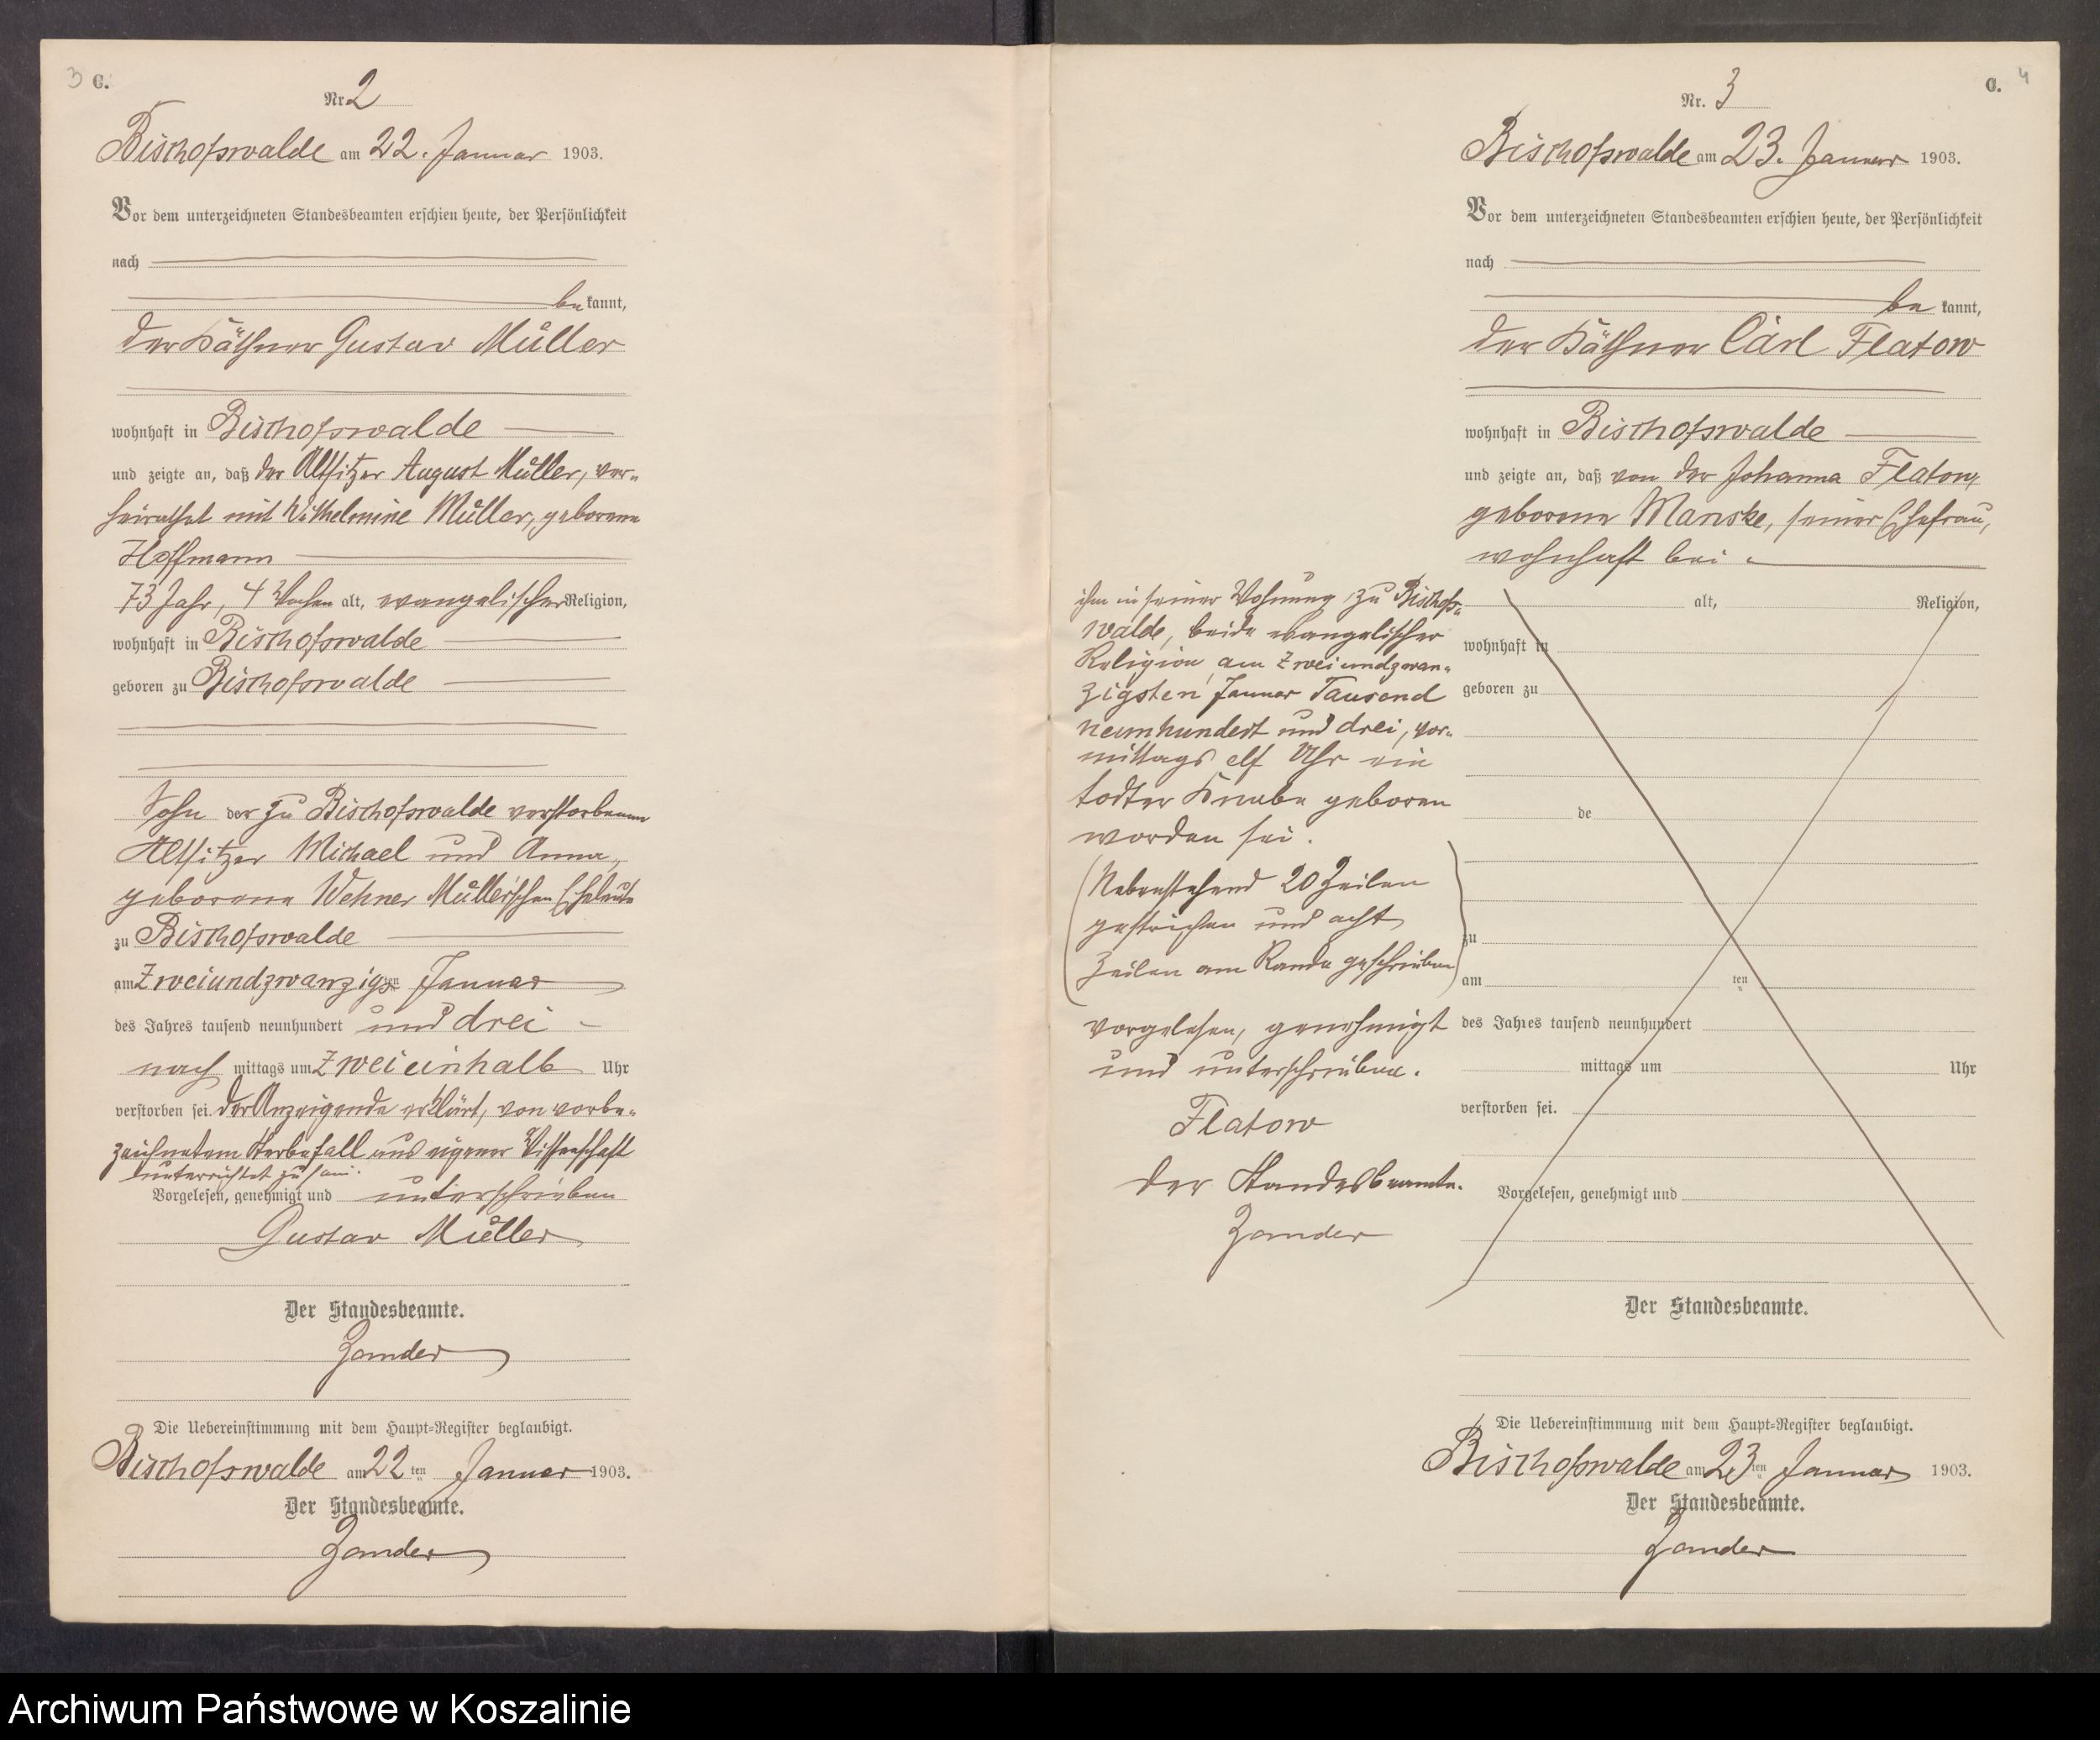 3 C.
Nr. 2
Bischofswalde am 22. Januar 1903.
Vor dem unterzeichneten Standesbeamten erschien heute, der Persönlichkeit
nach
bekannt,
der Käthner Gustav Müller
wohnhaft in Bischofswalde
und zeigte an, daß der Altsitzer August Müller, ver-
heirathet mit Wilhelmine Müller, geborene
Hoffmann
73 Jahr, 4 Wochen alt, evangelischer Religion,
wohnhaft in Bischofswalde
geboren zu Bischofswalde
Sohn der zu Bischofswalde verstorbenen
Altsitzer Michael und Anna,
geborene Wehner Müller'schen Eheleute
zu Bischofswalde
am Zweiundzwanzigsten Januar
des Jahres tausend neunhundert und drei
nach mittags um Zwei einhalb Uhr
verstorben sei. Der Anzeigende erklärt, von vorbe-
zeichnetem Sterbefall aus eigener Wissenschaft
unterrichtet zu sein.
Vorgelesen, genehmigt und unterschrieben
Gustav Müller
Der Standesbeamte.
Zander
Die Uebereinstimmung mit dem Haupt-Register beglaubigt.
Bischofswalde am 22ten Januar 1903.
Der Standesbeamte.
Zander
C. 4
Nr. 3
Bischofswalde am 23. Januar 1903.
Vor dem unterzeichneten Standesbeamten erschien heute, der Persönlichkeit
nach
be kannt,
der Käthner Carl Flatow
wohnhaft in Bischofswalde
und zeigte an, daß von der Johanna Flatow,
geborene Manske, seiner Ehefrau,
wohnhaft bei
ihm in seiner Wohnung zu Bischofs-
walde, beide evangelischer
Religion, am Zweiundzwan-
zigsten Januar Tausend
neunhundert und drei, vor-
mittags elf Uhr ein
todter Knabe geboren
worden sei.
(Nebenstehend 20 Zeilen
gestrichen und acht
Zeilen am Rande geschrieben)
vorgelesen, genehmigt
und unterschrieben.
Flatow
Der Standesbeamte.
Zander
alt, Religion,
wohnhaft in
geboren zu
de
zu
am ten
des Jahres tausend neunhundert
mittags um Uhr
verstorben sei.
Vorgelesen, genehmigt und
Der Standesbeamte.
Die Uebereinstimmung mit dem Haupt-Register beglaubigt.
Bischofswalde am 23ten Januar 1903.
Der Standesbeamte.
Zander
Archiwum Państwowe w Koszalinie